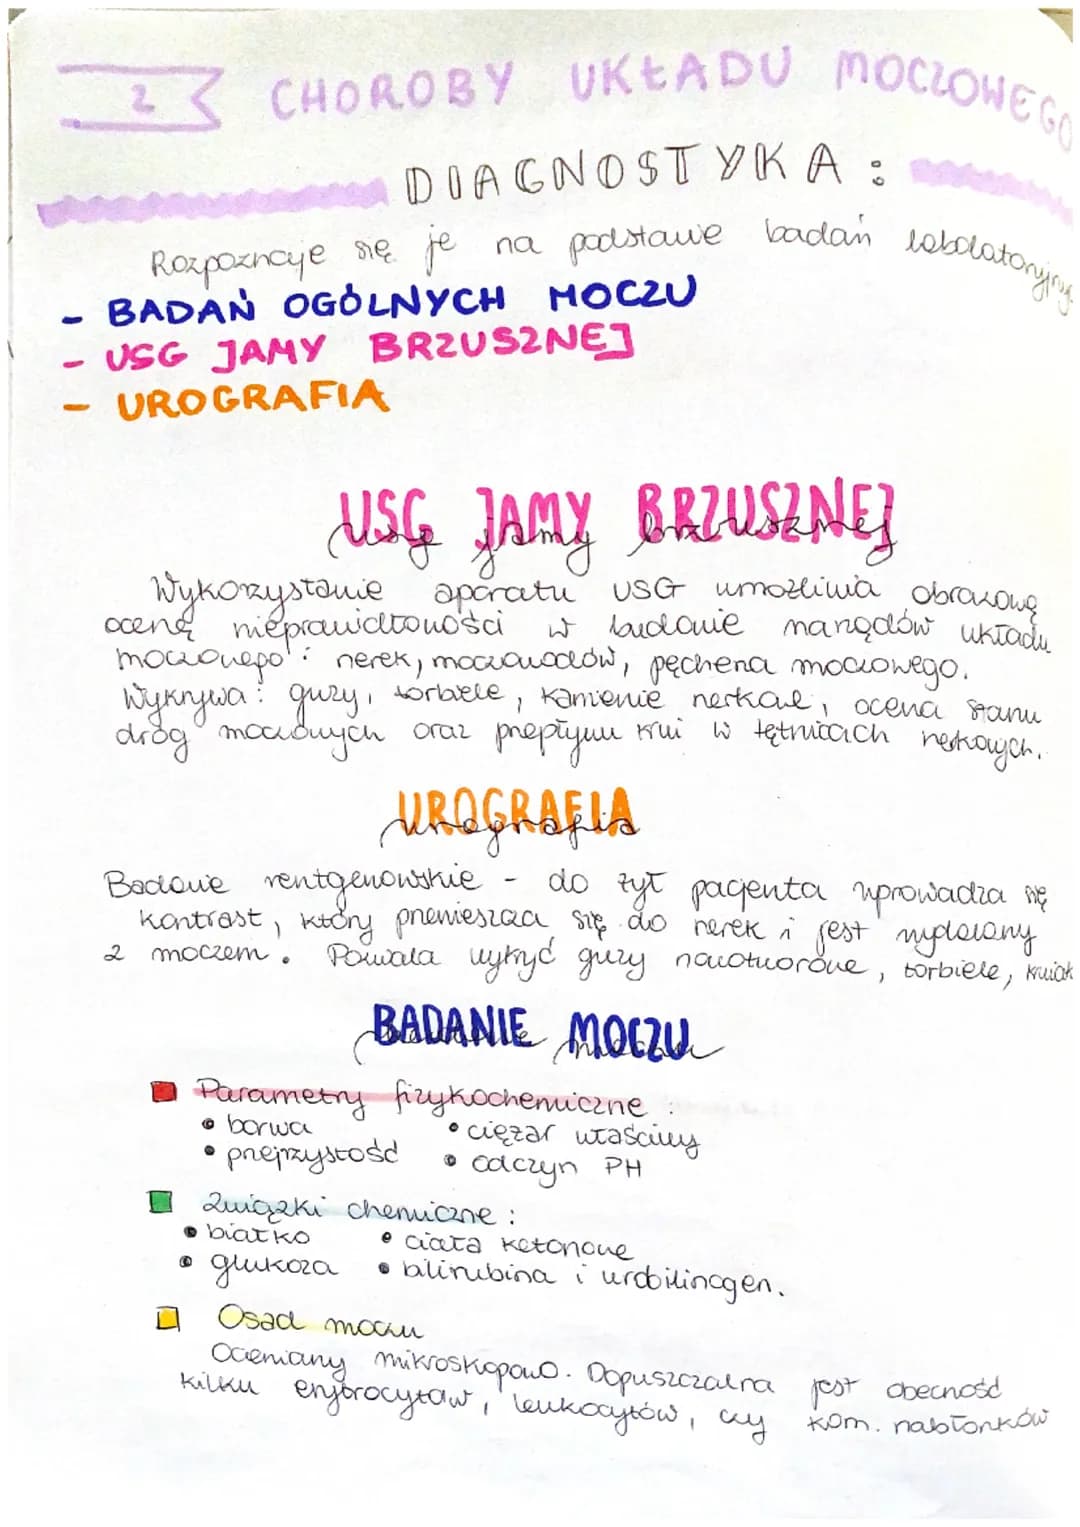 2 CHOROBY UKŁADU MOCZOWEGO
DIAGNOSTYKA:
Rozpoznaje się je na podstawie badań labolatoryjnych
- BADAŃ OGÓLNYCH MOCZU
- USG JAMY BRZUSZNEJ
- UROGRAFIA
USG JAMY BRZUSZNEJ
Wykorzystanie aparatu USG umożliwia obrazową
ocenę nieprawidłowości w budowie narządów układu
moczowego: nerek, moczowodów, pęcherza moczowego.
Wykrywa: guzy, torbiele, kamienie nerkowe, ocena stanu
dróg moczowych oraz przepływu krwi w tętnicach nerkowych.
UROGRAFIA
Badanie rentgenowskie - do żył pacjenta wprowadza się
kontrast, który przemieszcza się do nerek i jest wydalany
z moczem. Pozwala wykryć guzy nowotworowe, torbiele, krwiak
BADANIE MOCZU
Parametry fizykochemiczne:
• barwa • ciężar właściwy
• przejrzystość • odczyn PH
Związki chemiczne:
• białko • ciała ketonowe
• glukoza • bilirubina i urobilinogen.
Osad moczu
Oceniany mikroskopowo. Dopuszczalna jest obecność
kilku erytrocytów, leukocytów, czy kom. nabłonków